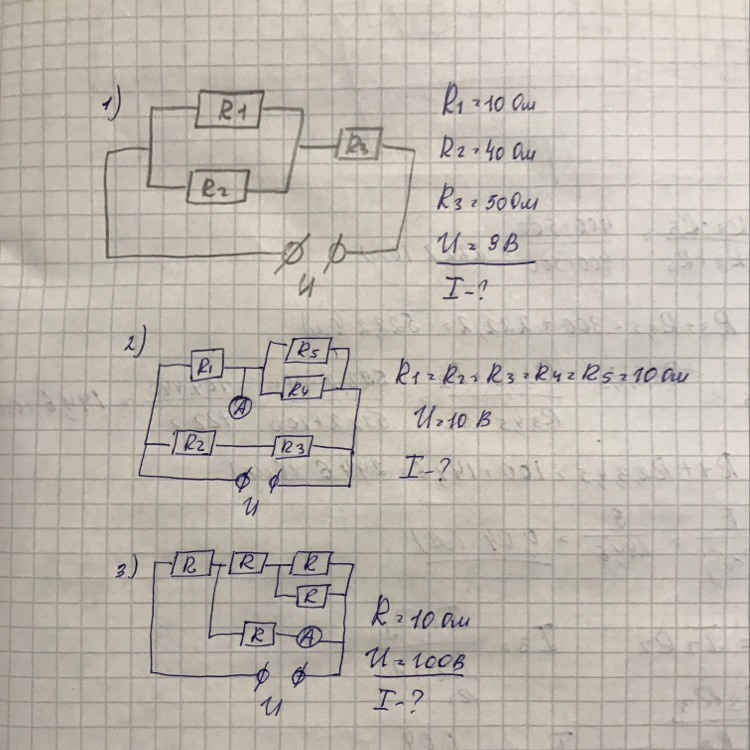 1)
R1
R2
R3
U
R1 = 10 Ом
R2 = 40 Ом
R3 = 50 Ом
U = 9 В
I - ?
2)
R1
R5
R4
A
R2
R3
U
R1 = R2 = R3 = R4 = R5 = 10 Ом
U = 10 В
I - ?
3)
R
R
R
R
R
A
U
R = 10 Ом
U = 100 В
I - ?